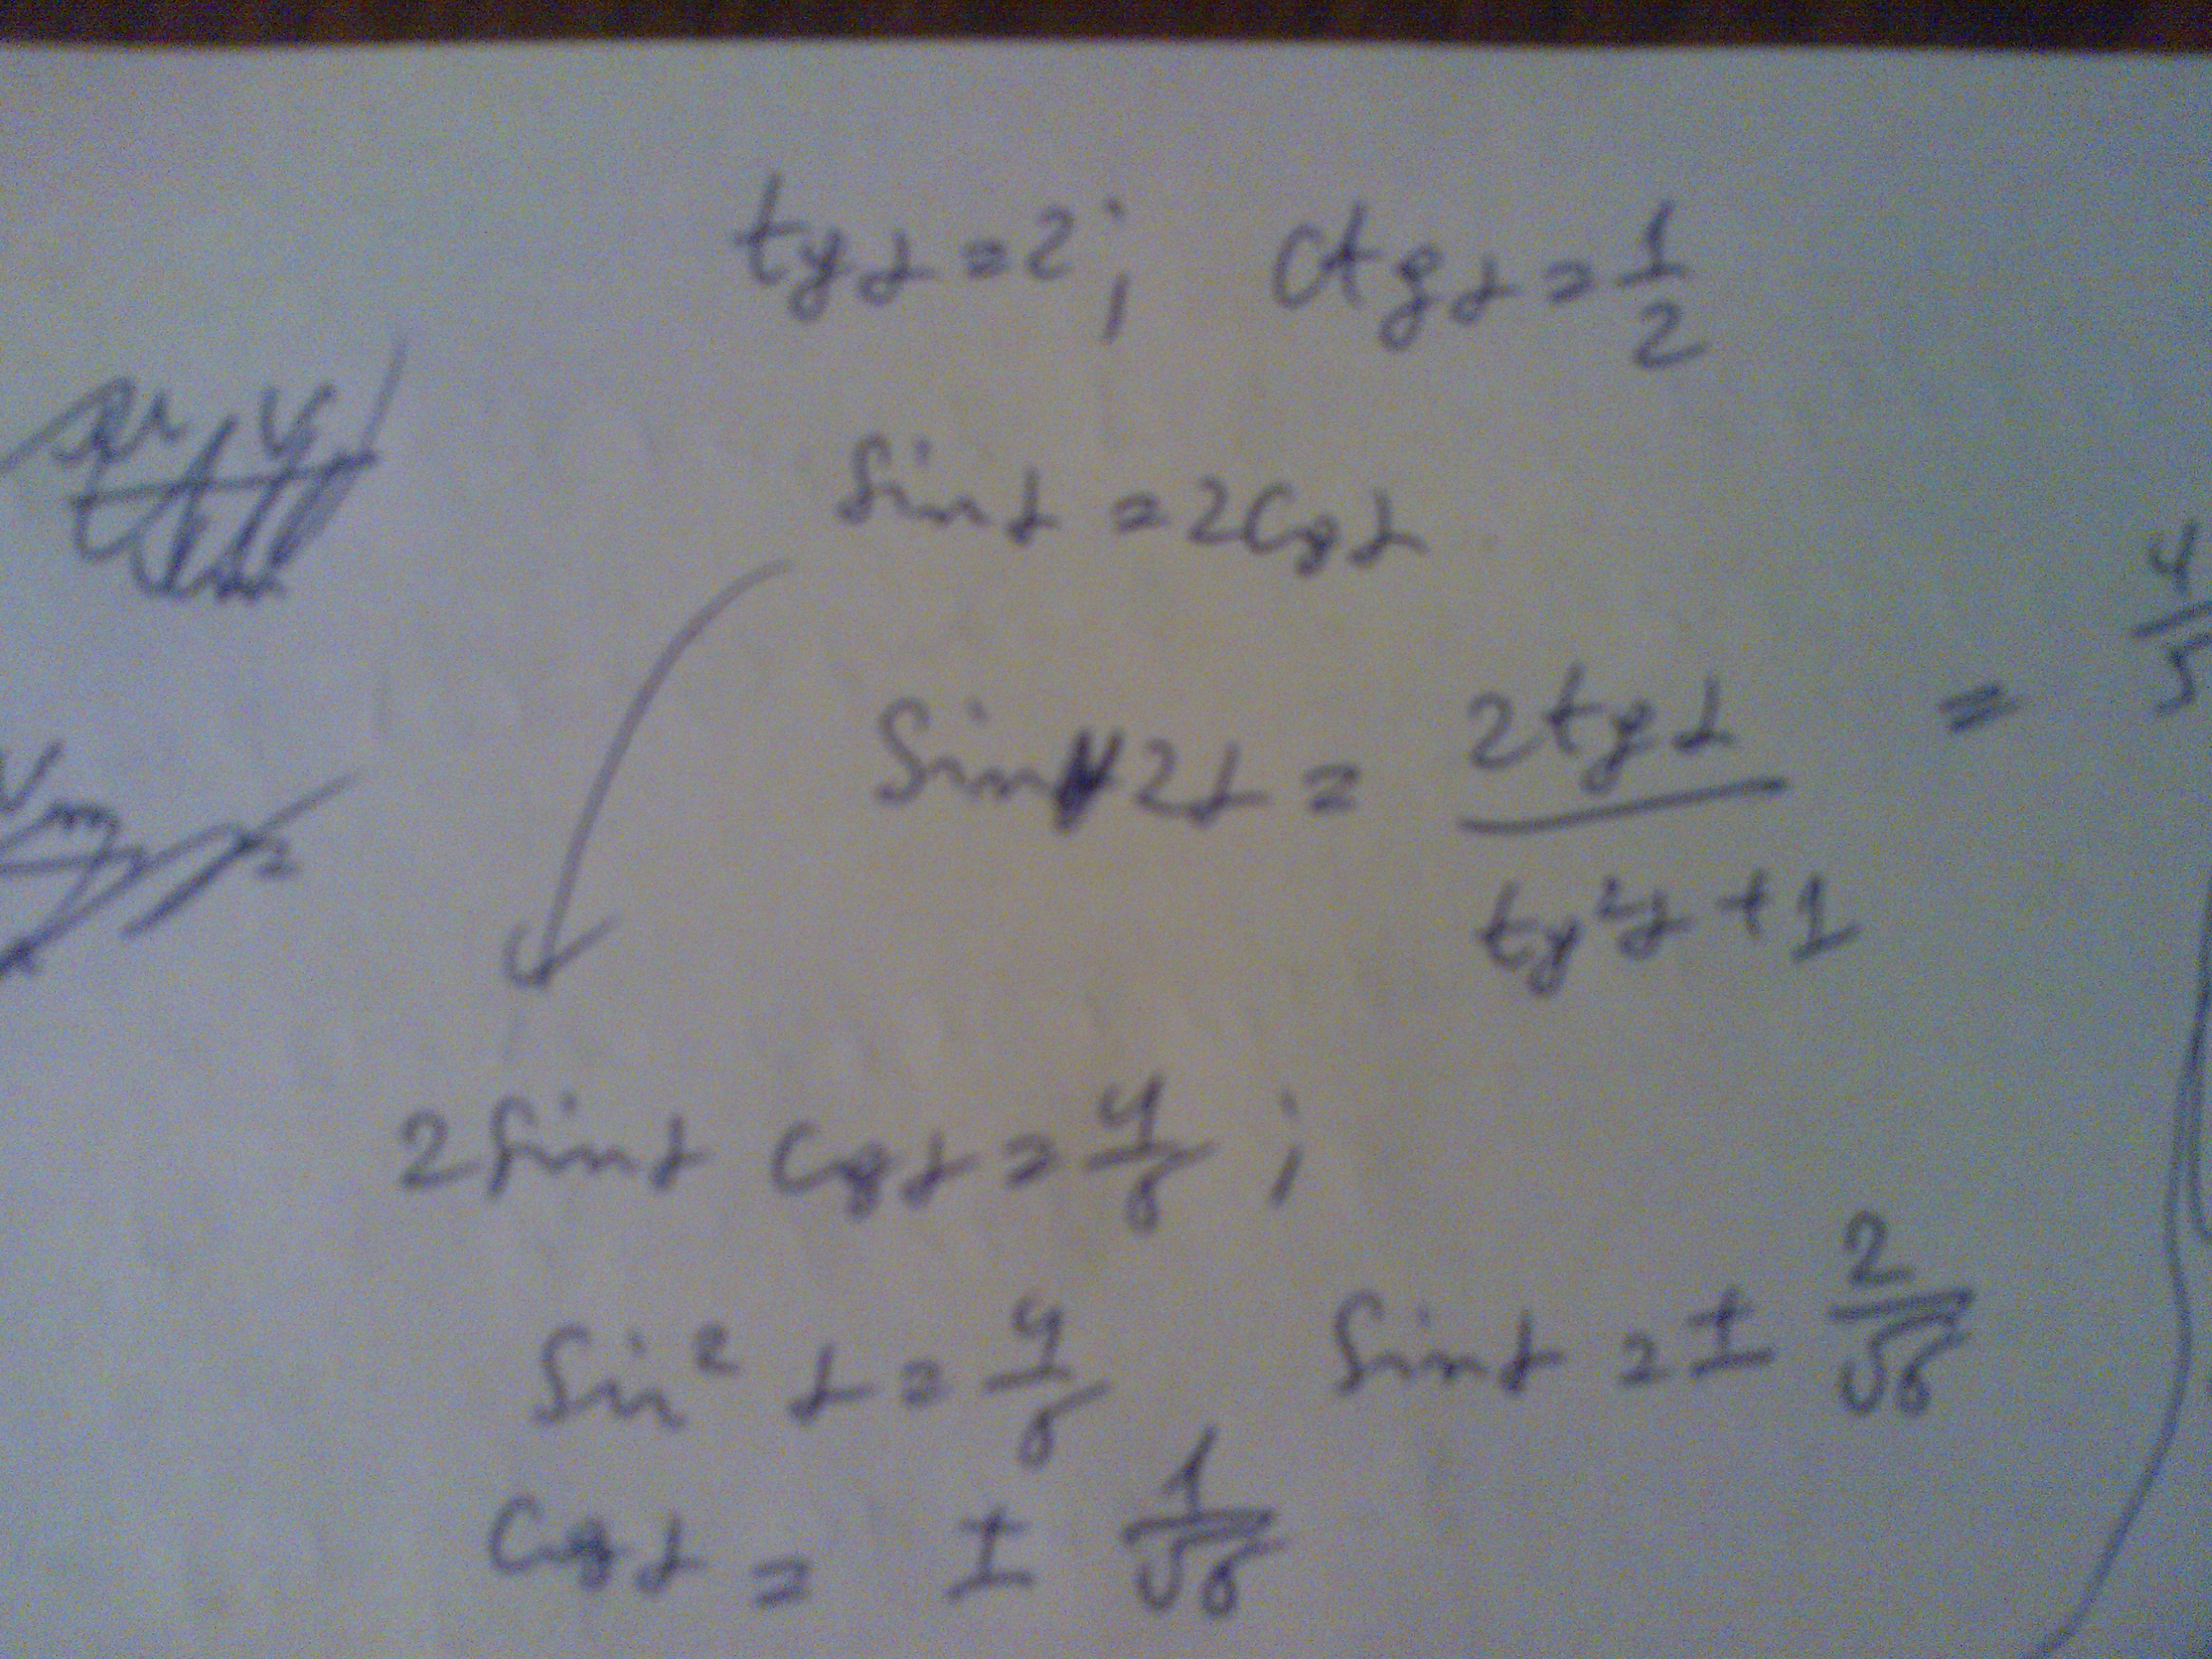 tgα = 2; ctgα = 1/2
Sinα = 2Cosα
Sin 2α = 2tgα / tg²α + 1 = 4/5
2Sinα Cosα = 4/5;
Sin²α = 4/5 Sinα = ± 2/√5
Cosα = ± 1/√5